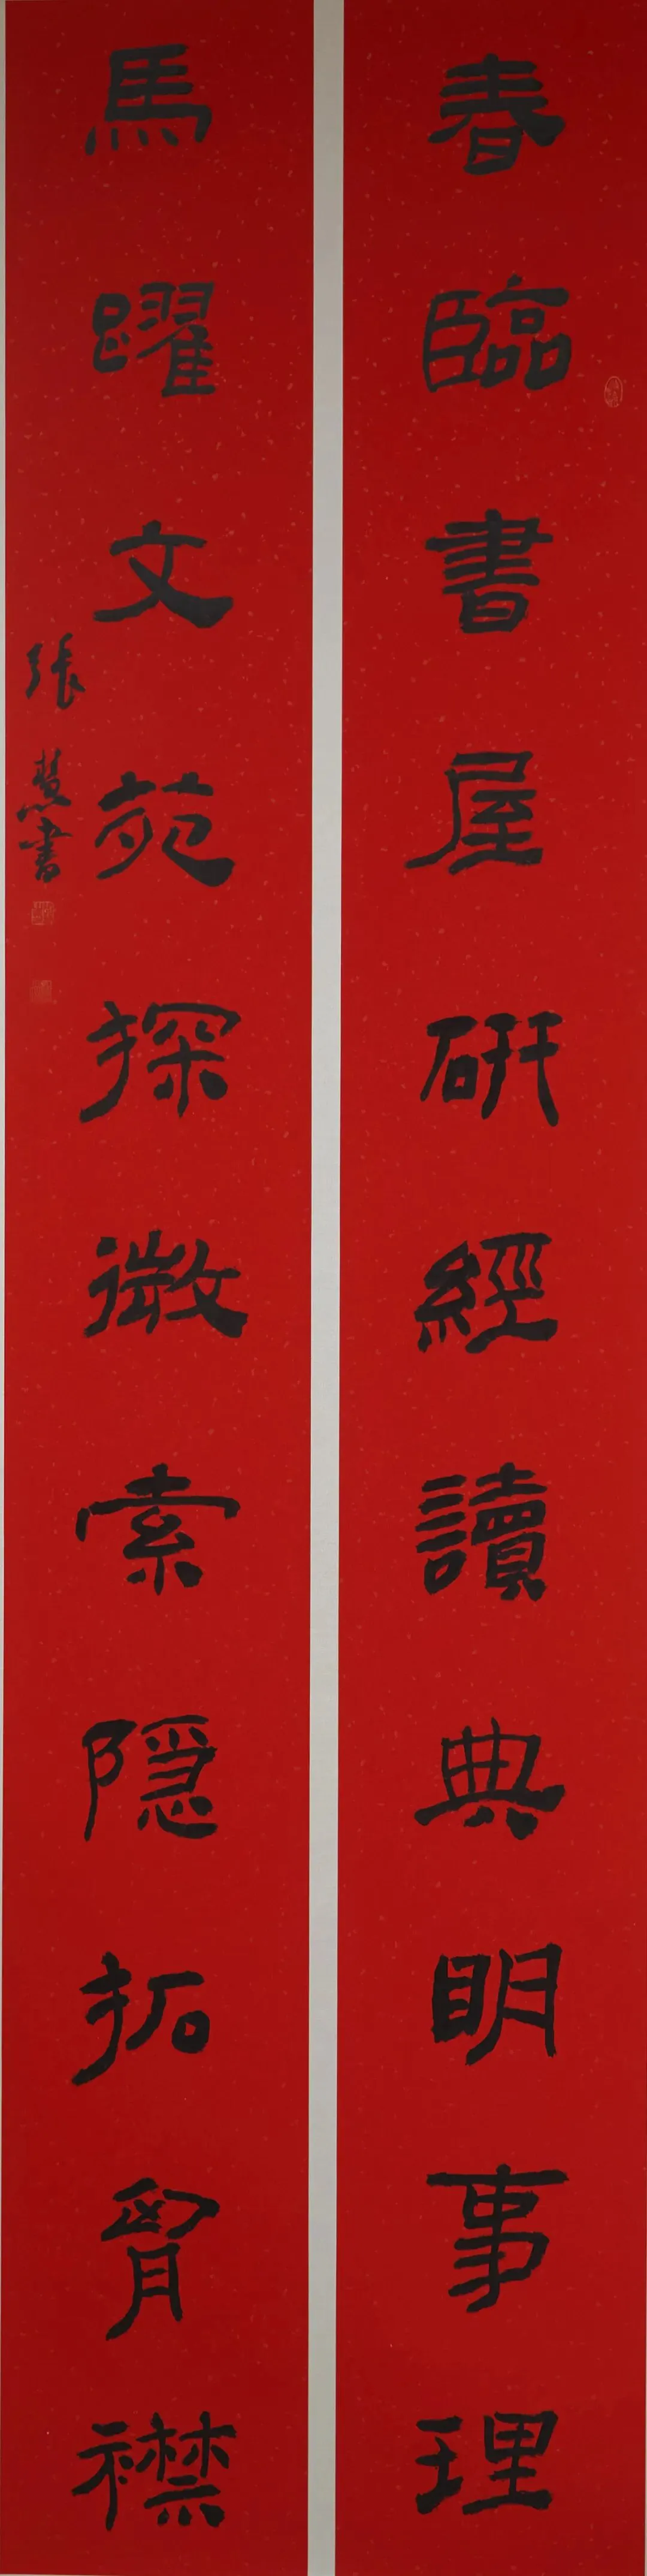 春臨書屋研經讀典明事理
馬躍文苑探微索隱拓胷襟
張慧書